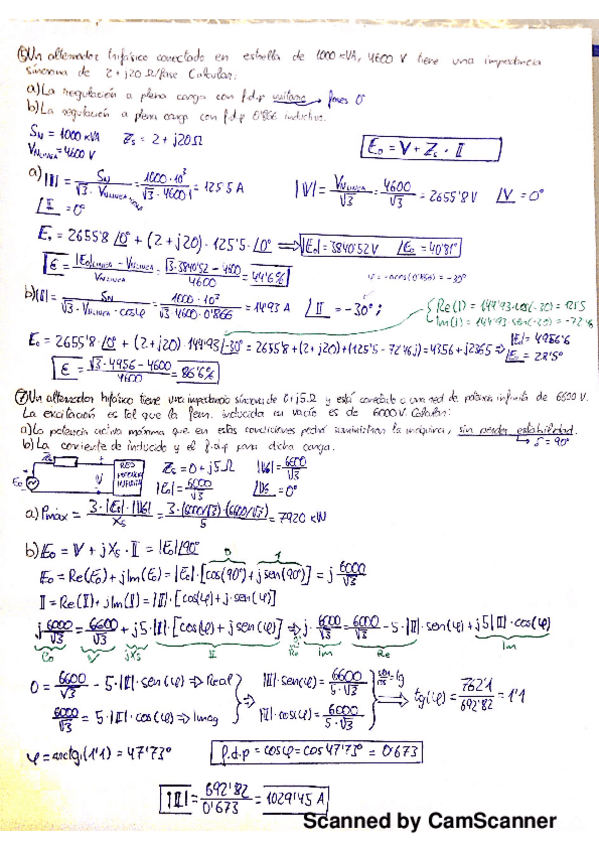 ⑤Un alternador trifásico conectado en estrella de 1000 kVA, 4600 V tiene una impedancia
síncrona de 2+j20 Ω/fase Calcular:
a) La regulación a plena carga con f.d.p unitario → fases 0°
b) La regulación a plena carga con f.d.p 0'866 inductivo.
S_N = 1000 kVA Z_s = 2 + j20 Ω
V_NLINEA = 4600 V
E_0 = V + Z_s · I
a) |I| = S_N / (√3 · V_NLINEA) = 1000·10³ / (√3 · 4600 · 1) = 125'5 A |V| = V_NLINEA / √3 = 4600 / √3 = 2655'8 V ∠V = 0°
∠I = 0°
E_0 = 2655'8 ∠0° + (2+j20) · 125'5 · ∠0° ⇒ |E_0| = 3840'52 V ∠E_0 = 40'81°
ε = (|E_0|LINEA − V_NLINEA) / V_NLINEA = (√3·3840'52 − 4600) / 4600 = 44'6%
φ = −arcos(0'866) = −30°
b) |I| = S_N / (√3 · V_NLINEA · cosφ) = 1000·10³ / (√3 · 4600 · 0'866) = 144'93 A ∠I = −30°;
Re(I) = 144'93·cos(−30) = 125'5
Im(I) = 144'93·sen(−30) = −72'46
E_0 = 2655'8 · ∠0° + (2+j20) · 144'93 ∠−30° = 2655'8 + (2+j20) · (125'5 − 72'46j) = 4356 + j2365 ⇒ |E| = 4956'6
∠E_0 = 28'5°
ε = (√3 · 4956 − 4600) / 4600 = 86'6%
⑦Un alternador trifásico tiene una impedancia síncrona de 0+j5 Ω y está conectado a una red de potencia infinita de 6600 V.
La excitación es tal que la fem. inducida en vacío es de 6000 V. Calcular:
a) La potencia activa máxima que en estas condiciones podrá suministrar la máquina, sin perder estabilidad.
→ δ = 90°
b) La corriente de inducido y el f.d.p para dicha carga.
Z_s E_0 V RED POTENCIA INFINITA
Z_s = 0 + j5 Ω |V_G| = 6600 / √3
|E_0| = 6000 / √3 ∠V_G = 0°
a) Pmáx = 3·|E_0|·|V_G| / X_s = 3·(6000/√3)·(6600/√3) / 5 = 7920 kW
b) E_0 = V + jX_s · I = |E_0| ∠90° 0 1
E_0 = Re(E_0) + jIm(E_0) = |E_0| · [cos(90°) + jsen(90°)] = j 6000/√3
I = Re(I) + jIm(I) = |I| · [cos(φ) + j·sen(φ)]
j 6000/√3 = 6600/√3 + j5·|I|·[cos(φ) + jsen(φ)] ⇒ j· 6000/√3 = 6600/√3 − 5·|I|·sen(φ) + j5|I|·cos(φ)
E_0 V jX_s I Re Im Re Im
0 = 6600/√3 − 5·|I|·sen(φ) ⇒ Real |I|·sen(φ) = 6600 / (5·√3) sen/cos = tg
6000/√3 = 5·|I|·cos(φ) ⇒ Imag |I|·cos(φ) = 6000 / (5·√3) ⇒ tg(φ) = 762'1 / 692'82 = 1'1
φ = arctg(1'1) = 47'73° f.d.p = cosφ = cos 47'73° = 0'673
|I| = 692'82 / 0'673 = 1029'45 A
Scanned by CamScanner